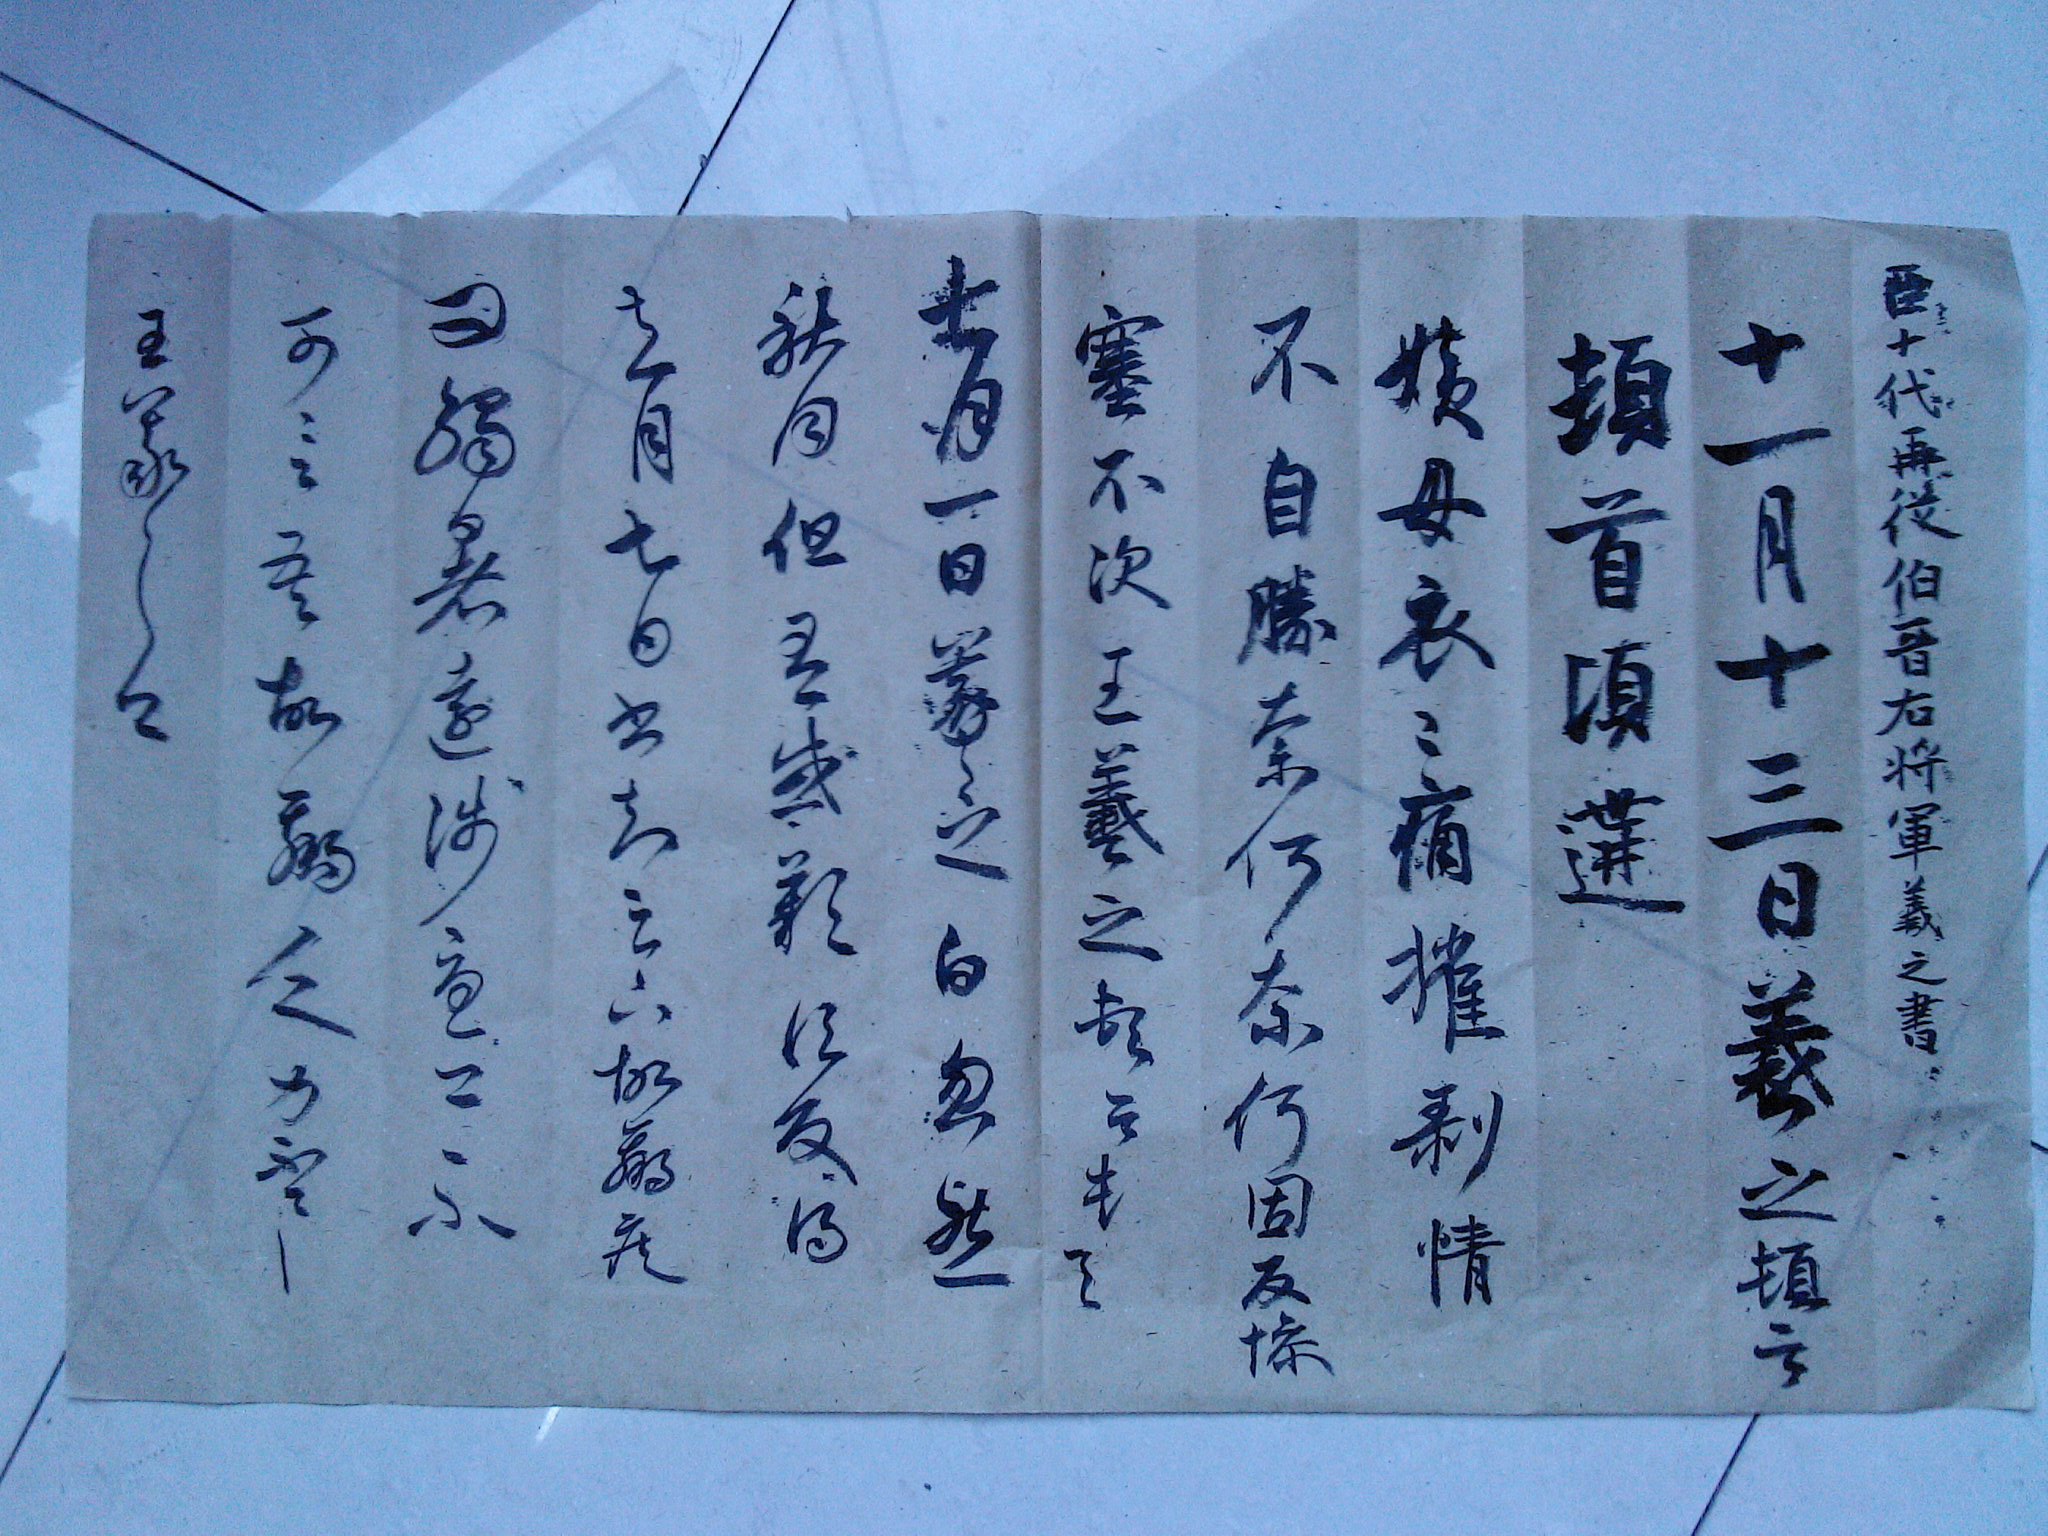 臣十代再從伯晉右將軍羲之書
十一月十三日羲之頓首
頓首頃遘
姨母哀〻痛摧剥情
不自勝奈何奈何因反慘
塞不次王羲之頓首頓首
七月一日羲之白忽然
秋月但有感歎信反得
去月七日書知足下故羸疾
問觸暑遠涉憂卿不
可言吾故羸乏力不具
王羲之白